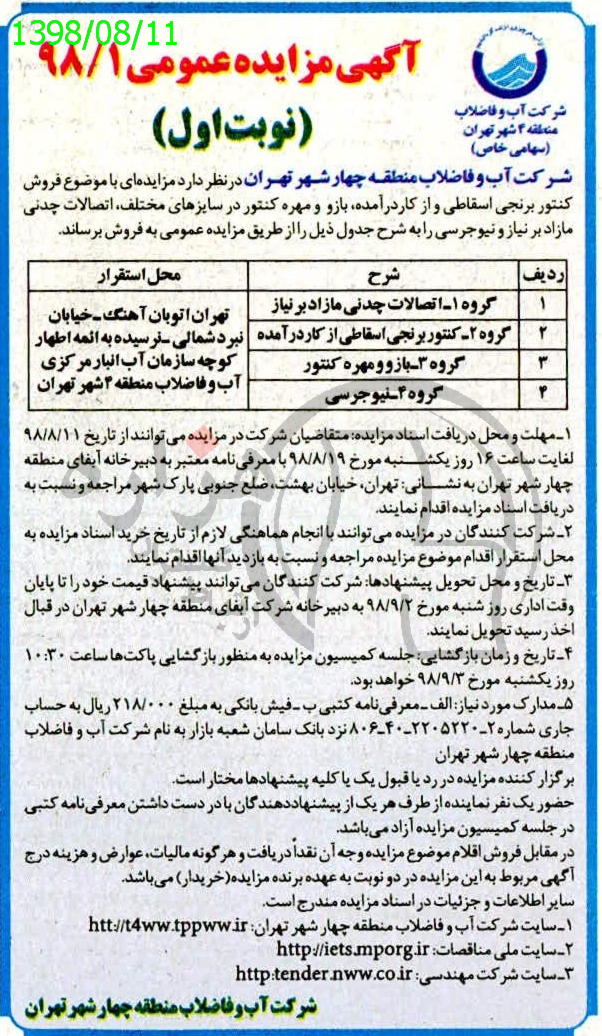 1398/08/11
آگهی مزایده عمومی ۹۸/۱
(نوبت اول)
شرکت آب و فاضلاب
منطقه ۴ شهر تهران
(سهامی خاص)
شرکت آب و فاضلاب منطقه چهار شهر تهران در نظر دارد مزایده‌ای با موضوع فروش
کنتور برنجی اسقاطی و از کار درآمده، بازو و مهره کنتور در سایزهای مختلف، اتصالات چدنی
مازاد بر نیاز و نیوجرسی را به شرح جدول ذیل را از طریق مزایده عمومی به فروش برساند.
ردیف شرح محل استقرار
۱ گروه ۱ـ اتصالات چدنی مازاد بر نیاز
۲ گروه ۲ـ کنتور برنجی اسقاطی از کار درآمده
۳ گروه ۳ـ بازو و مهره کنتور
۴ گروه ۴ـ نیوجرسی
تهران اتوبان آهنگ ـ خیابان
نبرد شمالی ـ نرسیده به ائمه اطهار
کوچه سازمان آب انبار مرکزی
آب و فاضلاب منطقه ۴ شهر تهران
۱ـ مهلت و محل دریافت اسناد مزایده: متقاضیان شرکت در مزایده می‌توانند از تاریخ ۹۸/۸/۱۱
لغایت ساعت ۱۶ روز یکشنبه مورخ ۹۸/۸/۱۹ با معرفی‌نامه معتبر به دبیرخانه آبفای منطقه
چهار شهر تهران به نشانی: تهران، خیابان بهشت، ضلع جنوبی پارک شهر مراجعه و نسبت به
دریافت اسناد مزایده اقدام نمایند.
۲ـ شرکت کنندگان در مزایده می‌توانند با انجام هماهنگی لازم از تاریخ خرید اسناد مزایده به
محل استقرار اقدام موضوع مزایده مراجعه و نسبت به بازدید آنها اقدام نمایند.
۳ـ تاریخ و محل تحویل پیشنهادها: شرکت کنندگان می‌توانند پیشنهاد قیمت خود را تا پایان
وقت اداری روز شنبه مورخ ۹۸/۹/۲ به دبیرخانه شرکت آبفای منطقه چهار شهر تهران در قبال
اخذ رسید تحویل نمایند.
۴ـ تاریخ و زمان بازگشایی: جلسه کمیسیون مزایده به منظور بازگشایی پاکت‌ها ساعت ۱۰:۳۰
روز یکشنبه مورخ ۹۸/۹/۳ خواهد بود.
۵ـ مدارک مورد نیاز: الف ـ معرفی‌نامه کتبی ب ـ فیش بانکی به مبلغ ۲۱۸/۰۰۰ ریال به حساب
جاری شماره ۲ـ۲۲۰۵۲۲۰ـ۴۰ـ۸۰۶ نزد بانک سامان شعبه بازار به نام شرکت آب و فاضلاب
منطقه چهار شهر تهران
برگزار کننده مزایده در رد یا قبول یک یا کلیه پیشنهادها مختار است.
حضور یک نفر نماینده از طرف هر یک از پیشنهاددهندگان با در دست داشتن معرفی‌نامه کتبی
در جلسه کمیسیون مزایده آزاد می‌باشد.
در مقابل فروش اقلام موضوع مزایده وجه آن نقداً دریافت و هر گونه مالیات، عوارض و هزینه درج
آگهی مربوط به این مزایده در دو نوبت به عهده برنده مزایده (خریدار) می‌باشد.
سایر اطلاعات و جزئیات در اسناد مزایده مندرج است.
۱ـ سایت شرکت آب و فاضلاب منطقه چهار شهر تهران: htt://t4ww.tppww.ir
۲ـ سایت ملی مناقصات: http://iets.mporg.ir
۳ـ سایت شرکت مهندسی: http:tender.nww.co.ir
شرکت آب و فاضلاب منطقه چهار شهر تهران